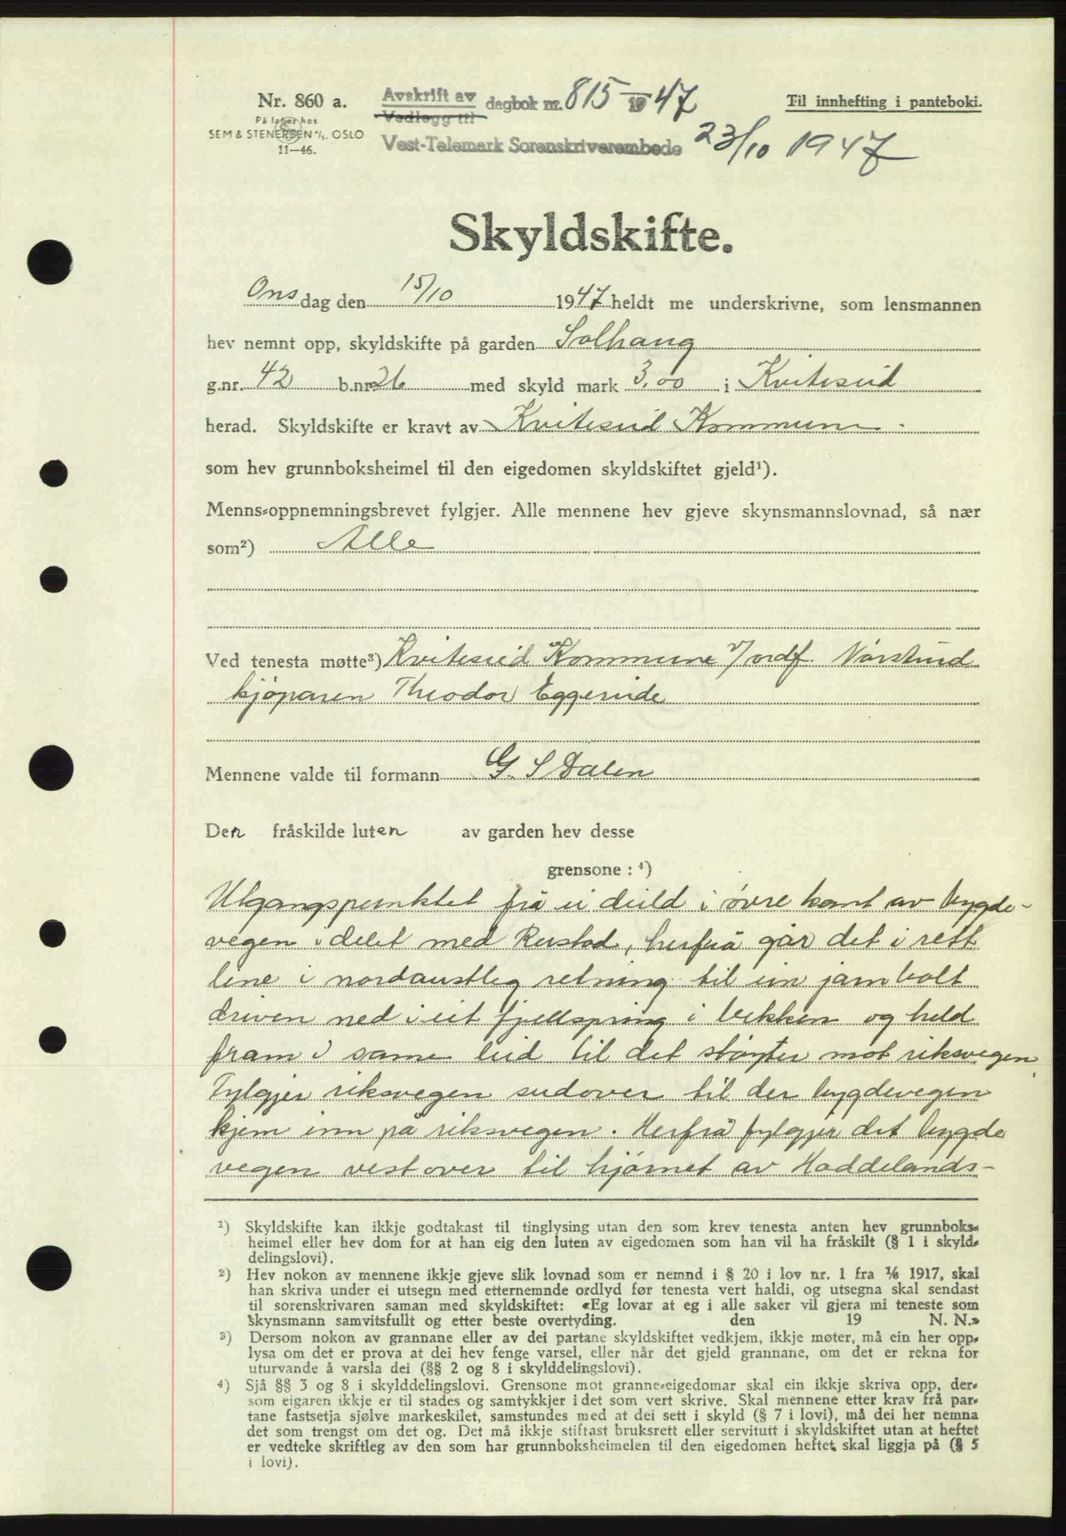 Nr. 860 a.
På lager hos
SEM & STENERSEN A/S. OSLO
11—46.
Avskrift av
Vedlegg til
dagbok nr. 815 — 1947
Vest-Telemark Sorenskriverembede
23/10 1947
Til innhefting i panteboki.
Skyldskifte.
Onsdag den 15/10 1947 heldt me underskrivne, som lensmannen
hev nemnt opp, skyldskifte på garden Solhaug
g.nr. 42 b.nr. 26 med skyld mark 3,00 i Kviteseid
herad. Skyldskifte er kravt av Kviteseid Kommune.
som hev grunnboksheimel til den eigedomen skyldskiftet gjeld¹).
Menns-oppnemningsbrevet fylgjer. Alle mennene hev gjeve skynsmannslovnad, så nær
som²) Alle
Ved tenesta møtte³) Kviteseid Kommune v/ordf. Nordstrud
kjøparen Theodor Eggerude
Mennene valde til formann G. S Dalen
Den fråskilde luten av garden hev desse
grensone : ⁴)
Utgangspunktet frå ei deild i øvre kant av bygde-
vegen i delet med Reistad, herfrå går det i rett
line i nordaustleg retning til ein jarnbolt
driven ned i eit fjellspring i bekken og held
fram i same leid til det støyter mot riksvegen
Fylgjer riksvegen sudover til der bygdevegen
kjem inn på riksvegen. Herfrå fylgjer det bygde
vegen vestover til hjørnet av Haddelands-
¹) Skyldskifte kan ikkje godtakast til tinglysing utan den som krev tenesta anten hev grunnboks-
heimel eller hev dom for at han eig den luten av eigedomen som han vil ha fråskilt (§ 1 i skyld-
delingslovi).
²) Hev nokon av mennene ikkje gjeve slik lovnad som er nemnd i § 20 i lov nr. 1 fra 1/6 1917, skal
han skriva under ei utsegn med etternemnde ordlyd før tenesta vert haldi, og utsegna skal sendast
til sorenskrivaren saman med skyldskiftet: «Eg lovar at eg i alle saker vil gjera mi teneste som
skynsmann samvitsfullt og etter beste overtyding. den 19 N. N.»
³) Dersom nokon av grannane eller av dei partane skyldskiftet vedkjem, ikkje møter, må ein her opp-
lysa om det er prova at dei hev fenge varsel, eller når det gjeld grannane, om det er rekna for
uturvande å varsla dei (§§ 2 og 8 i skylddelingslovi).
⁴) Sjå §§ 3 og 8 i skylddelingslovi. Grensone mot granne-eigedomar skal ein ikkje skriva opp, der-
som eigaren ikkje er til stades og samtykkjer i det som vert skrive. Skal mennene etter krav frå par-
tane fastsetja sjølve markeskilet, samstundes med at dei sett i skyld (§ 7 i lovi), må dei her nemna
det som trengst om det og. Det må ikkje stiftast bruksrett eller servitutt i skyldskiftet utan at heftet
er vedteke skriftleg av den som har grunnboksheimelen til den eigedomen heftet skal liggja på (§ 5
i lovi).